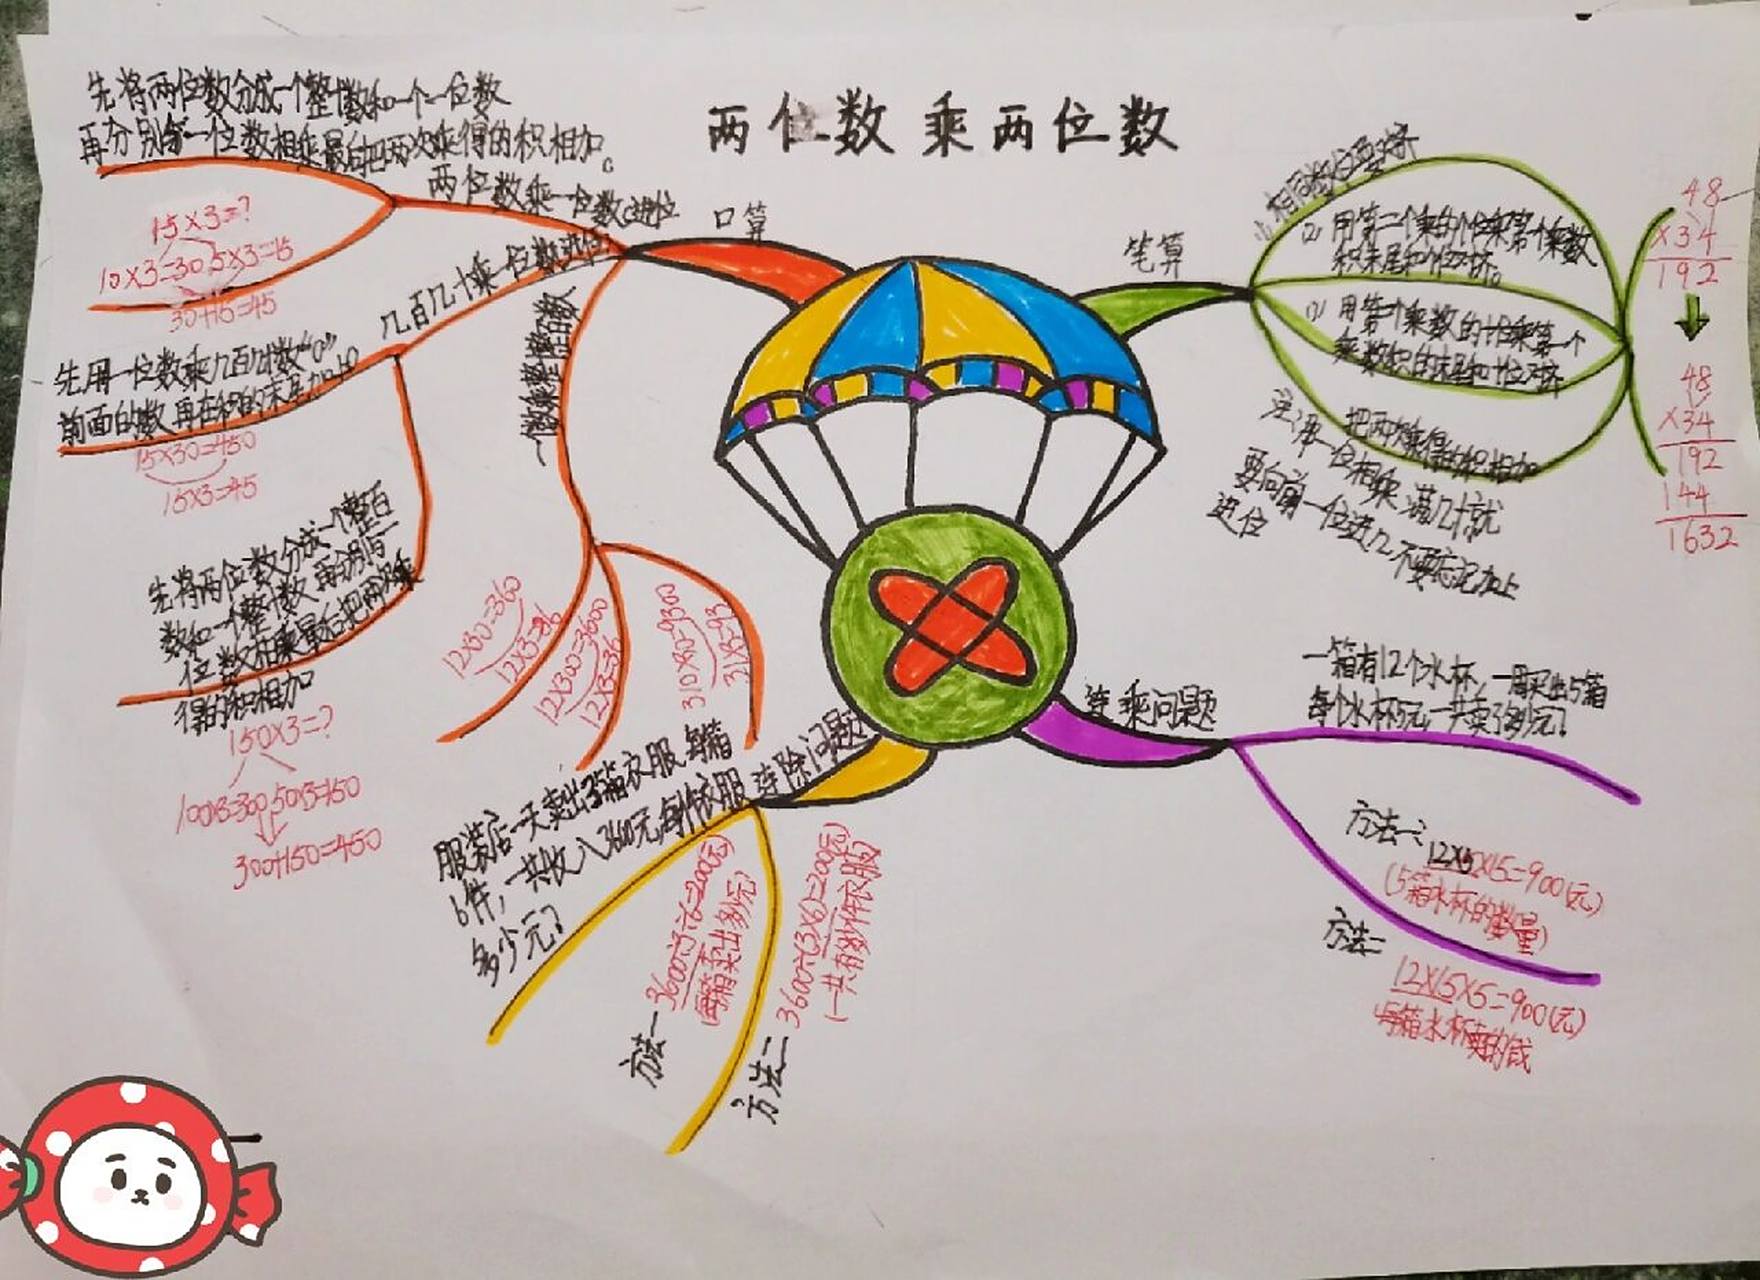 两位数乘两位数
口算
两位数乘一位数进位
先将两位数分成一个整十数和一个一位数
再分别与一位数相乘最后把两次乘得的积相加。
15×3=?
10×3=30 5×3=15
30+15=45
几百几十乘一位数进位
先用一位数乘几百几十数"0"
前面的数再在积的末尾加上0
15×30=450
15×3=45
先将两位数分成一个整百
数和一个整十数再分别与
位数相乘最后把两次乘
得的积相加
150×3=?
100×3=300 50×3=150
300+150=450
一位数乘整十整百数
12×30=360
12×3=36
12×300=3600
12×3=36
310×30=9300
31×3=93
笔算
(1)相同数位要对齐
(2)用第二个乘的个位乘第一个乘数
积末尾和个位对齐。
用第二个乘数的十位乘第一个
乘数积的末尾和十位对齐
把两次乘得的积相加
注:哪一位相乘满几十就
要向前一位进几不要忘记加上
进位
48
×34
192
48
×34
192
144
1632
连乘问题
一箱有12个水杯,一周卖出5箱
每个水杯15元,一共卖了多少元?
方法一:
12×5×15=900(元)
(5箱水杯的数量)
方法二
12×15×5=900(元)
每箱水杯卖的钱
连除问题
服装店一天卖出3箱衣服,每箱
6件,一共收入3600元,每件衣服
多少元?
方法一
3600÷3÷6=200(元)
(每箱卖出多少元)
方法二
3600÷(3×6)=200(元)
(一共有多少件衣服)